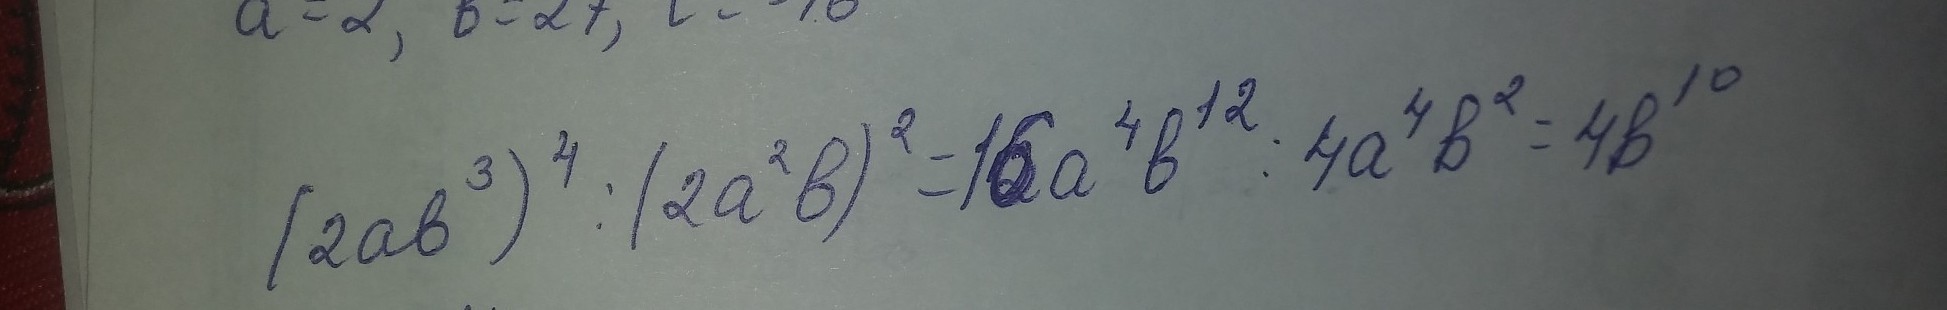 a = 2, b = 27,
(2ab³)⁴ : (2a²b)² = 16a⁴b¹² : 4a⁴b² = 4b¹⁰